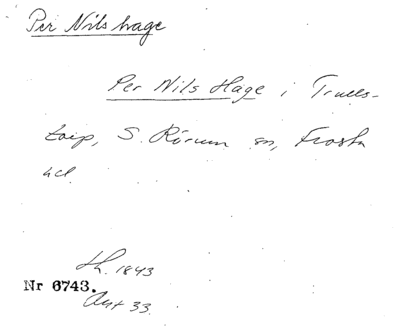 Per Nils hage
Per Nils Hage i Trulls-
torp, S. Rörum sn, Frosta
hd.
th. 1843
Nr 6743.
Ant 33.